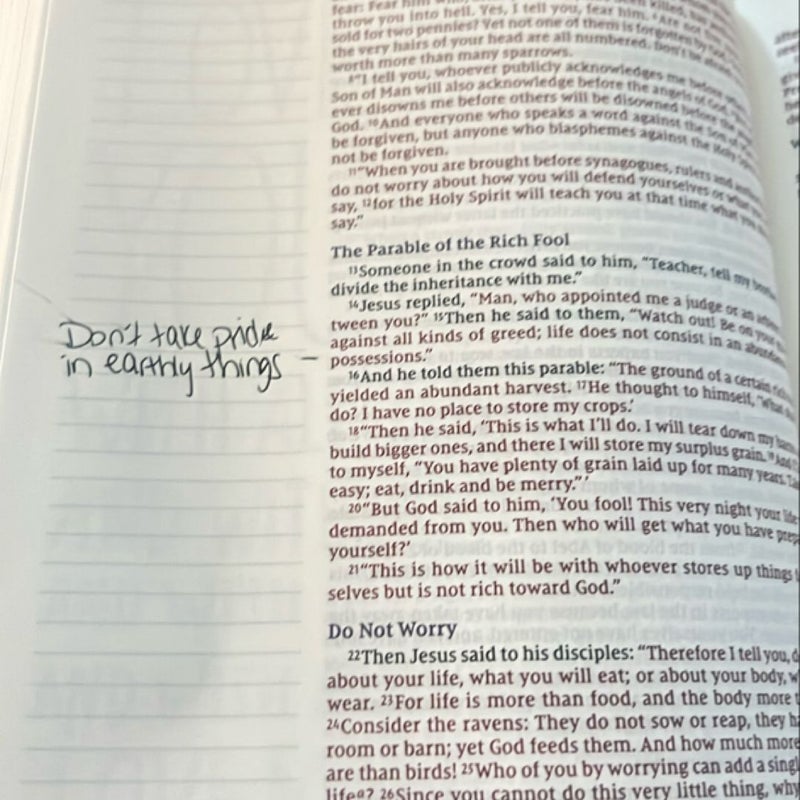 fear: Fear him who,
throw you into hell. Yes, I tell you, fear him. ⁶Are not
sold for two pennies? Yet not one of them is forgotten by
the very hairs of your head are all numbered. Don't be
worth more than many sparrows.
⁸"I tell you, whoever publicly acknowledges me before
Son of Man will also acknowledge before the angels of God.
ever disowns me before others will be disowned before the
God. ¹⁰And everyone who speaks a word against the Son of
be forgiven, but anyone who blasphemes against the Holy
not be forgiven.
¹¹"When you are brought before synagogues, rulers and
do not worry about how you will defend yourselves or what
say, ¹²for the Holy Spirit will teach you at that time what you
say."
The Parable of the Rich Fool
¹³Someone in the crowd said to him, "Teacher, tell my
divide the inheritance with me."
¹⁴Jesus replied, "Man, who appointed me a judge or an
Don't take pride
tween you?" ¹⁵Then he said to them, "Watch out! Be on your
against all kinds of greed; life does not consist in an
in earthly things –
possessions."
¹⁶And he told them this parable: "The ground of a certain
yielded an abundant harvest. ¹⁷He thought to himself, 'What
do? I have no place to store my crops.'
¹⁸"Then he said, 'This is what I'll do. I will tear down my
build bigger ones, and there I will store my surplus grain. ¹⁹And
to myself, "You have plenty of grain laid up for many years.
easy; eat, drink and be merry."'
²⁰"But God said to him, 'You fool! This very night your life
demanded from you. Then who will get what you have
yourself?'
²¹"This is how it will be with whoever stores up things
selves but is not rich toward God."
Do Not Worry
²²Then Jesus said to his disciples: "Therefore I tell you,
about your life, what you will eat; or about your body,
wear. ²³For life is more than food, and the body more
²⁴Consider the ravens: They do not sow or reap, they
room or barn; yet God feeds them. And how much more
are than birds! ²⁵Who of you by worrying can add a
lifeᵃ? ²⁶Since you cannot do this very little thing, why